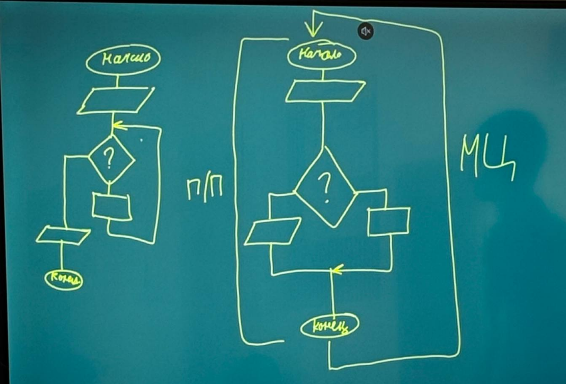 Начало
?
Конец
п/п
Начало
?
Конец
МЦ